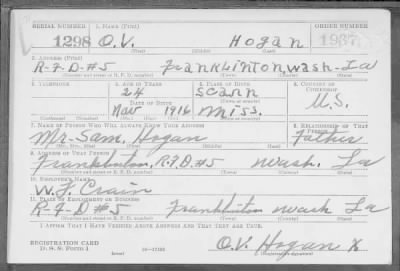 SERIAL NUMBER 1. NAME (Print) ORDER NUMBER
1298 O.V. Hogan 1967
(First) (Middle) (Last)
2. ADDRESS (Print)
R-F-D-#5 Franklinton, Wash- La
(Number and street or R. F. D. number) (Town) (County) (State)
3. TELEPHONE 4. AGE IN YEARS 5. PLACE OF BIRTH 6. COUNTRY OF CITIZENSHIP
24
DATE OF BIRTH (Town or county)
Nov 1916 Miss. U.S.
(Mo.) (Day) (Yr.) (State or country)
7. NAME OF PERSON WHO WILL ALWAYS KNOW YOUR ADDRESS 8. RELATIONSHIP OF THAT PERSON
Mr- Sam. Hogan Father
(Mr., Mrs., Miss) (First) (Middle) (Last)
9. ADDRESS OF THAT PERSON
Franklinton, R.F.D #5 Wash. La
(Number and street or R. F. D. number) (Town) (County) (State)
10. EMPLOYER'S NAME
W. F. Crain
11. PLACE OF EMPLOYMENT OR BUSINESS
R-F-D #5 Franklinton Wash La
(Number and street or R. F. D. number) (Town) (County) (State)
I AFFIRM THAT I HAVE VERIFIED ABOVE ANSWERS AND THAT THEY ARE TRUE.
REGISTRATION CARD
D. S. S. Form 1 (over) O.V. Hogan X